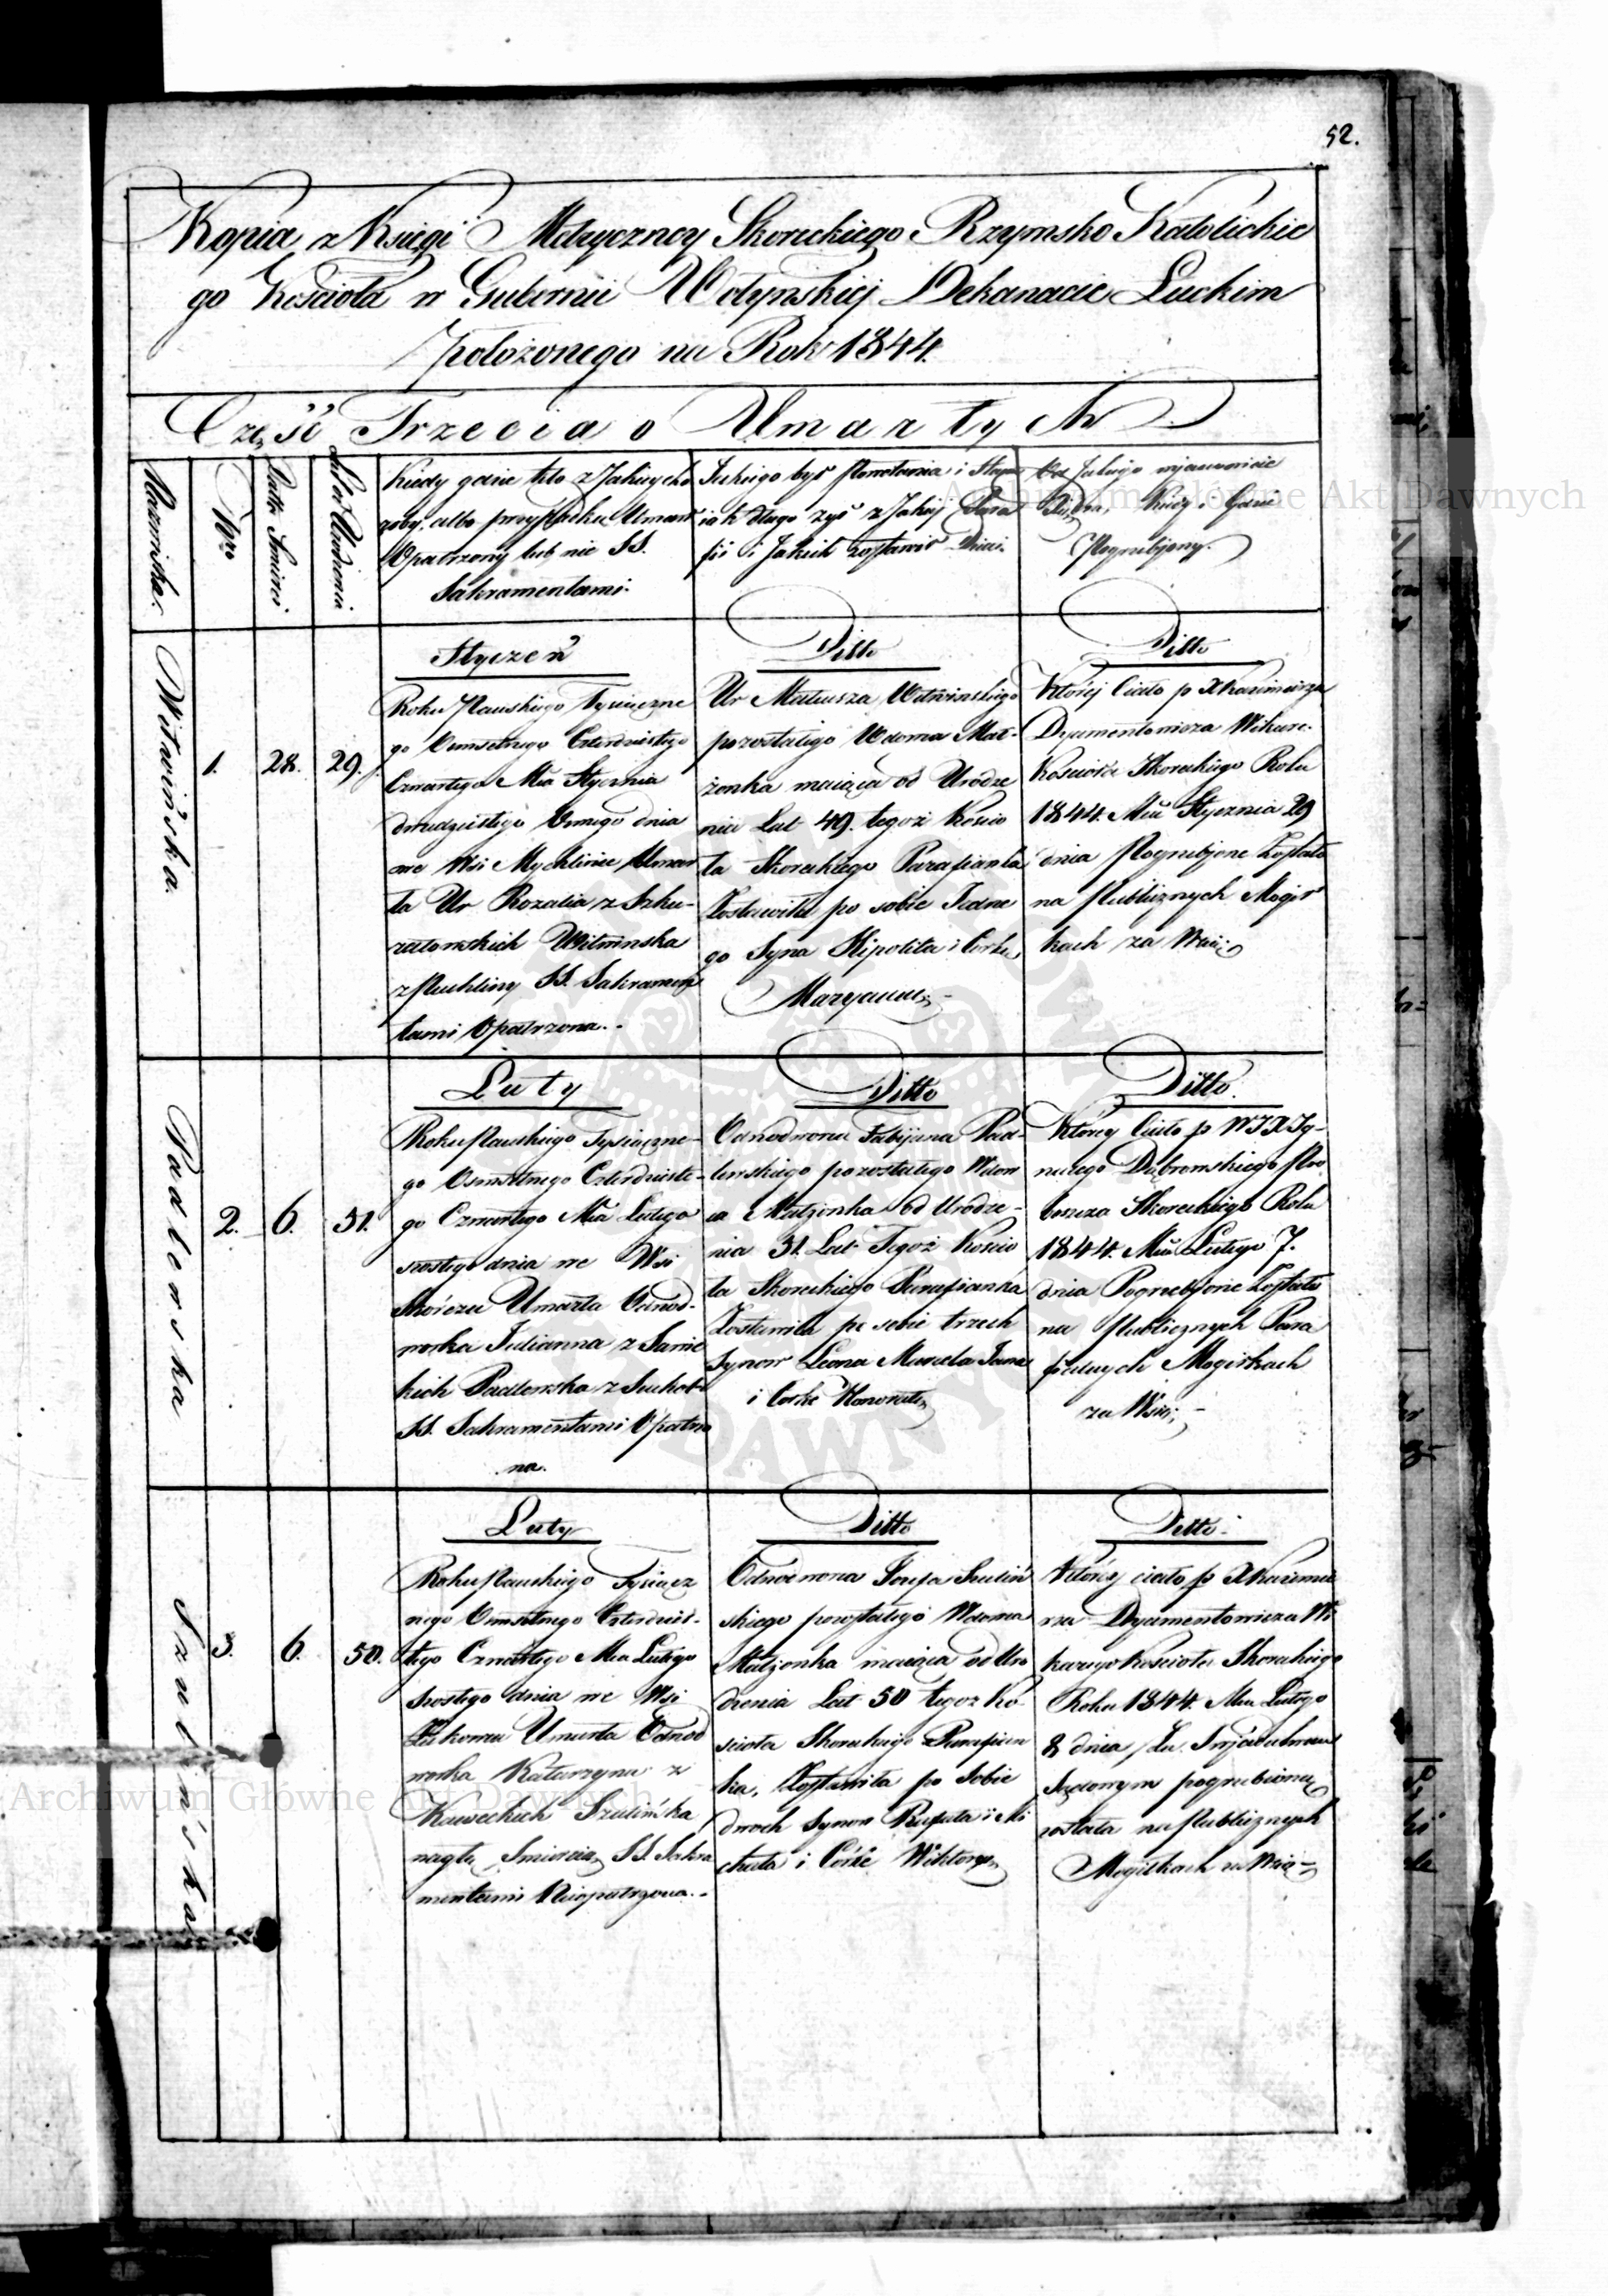 52.
Kopia z Księgi Metryczney Skoreckiego Rzymsko Katolickie
go Kościoła w Gubernii Wołynskiej Dekanacie Łuckim
położonego na Rok 1844.
Część Trzecia o Umarłych
Nazwiska.
Nro
Data Smierci
Lat od Urodzenia
Kiedy gdzie kto z Jakiey cho
roby, albo przypadku Umarł
Opatrzony lub nie SS.
Sakramentami.
Jakiego był Powołania i Stanu
iak długo żył z Jakiej Para
fii i Jakich zostawił Dzieci.
Kiedy i Gdzie
Pogrzebiony.
Witwińska.
1.
28.
29.
Styczeń
Roku Pańskiego Tysiączne
go Osmsetnego Czterdziestego
Czwartego Mca Stycznia
dwudziestego Osmego dnia
we Wsi Mychlinie Umar
ła Ur Rozalia z Szku-
ratowskich Witwinska
z Puchliny SS. Sakramen
tami Opatrzona.-
Ditto
Ur Mateusza Witwinskiego
pozostałego Wdowca Mał-
żonka maiąca od Urodze
nia Lat 49. tegoż Kościo
ła Skoreckiego Parafianka
Zostawiła po sobie Jedne
go Syna Hipolita i Corkę
Maryannę-
Ditto
Której Ciało p X Kazimierza
Dyamentowicza Wikare.
Kościoła Skoreckiego Roku
1844. Mca Stycznia 29
dnia Pogrzebione Zostało
na Publicznych Mogił
kach za Wsią
Padlewska
2.
6.
31.
Luty
Roku Pańskiego Tysiączne-
go Osmsetnego Czterdzieste-
go Czwartego Mca Lutego
szostego dnia we Wsi
Skórczu Umarła Odnod-
worka Julianna z Sawic
kich Padlewska z Suchot
SS. Sakramentami Opatrzo
na.
Ditto
Odnodworca Fabijana Pad-
lewskiego pozostałego Wdow
ca Małżonka od Urodze-
nia 31. Lat Tegoż Kościo
ła Skoreckiego Parafianka
Zostawiła po sobie trzech
Synow Leona Marcela Jana
i Corkę Honoratę
Ditto.
Którey Ciało p WJX Ig-
nacego Dąbrowskiego Pro
boszcza Skoreckiego Roku
1844. Mca Lutego 7.
dnia Pogrzebione Zostało
na Publicznych Para
fialnych Mogiłkach
za Wsią-
Szulińska
3.
6.
50.
Luty
Roku Pańskiego Tysiącz
nego Osmsetnego Czterdzies-
tego Czwartego Mca Lutego
szostego dnia we Wsi
Umarła Odnod
worka Katarzyna z
Kaweckich Szulińska
nagłą Smiercią SS. Sakra
mentami Nieopatrzona.-
Ditto
Odnodworca Jozefa Szuliń
skiego pozostałego Wdowca
Małżonka maiąca od Uro
dzenia Lat 50 tegoż Ko-
scioła Skoreckiego Parafian
ka, Zostawiła po Sobie
dwoch Synow Rafała i Mi
chała i Córkę Wiktorye
Ditto.
Którey ciało p X Kazimie
rza Dyamentowicza Wi
karego Kościoła Skoreckiego
Roku 1844. Mca Lutego
8 dnia Za
Sądowym pogrzebiona
została na Publicznych
Mogiłkach za Wsią-
Archiwum Główne Akt Dawnych
Archiwum Główne Akt Dawnych